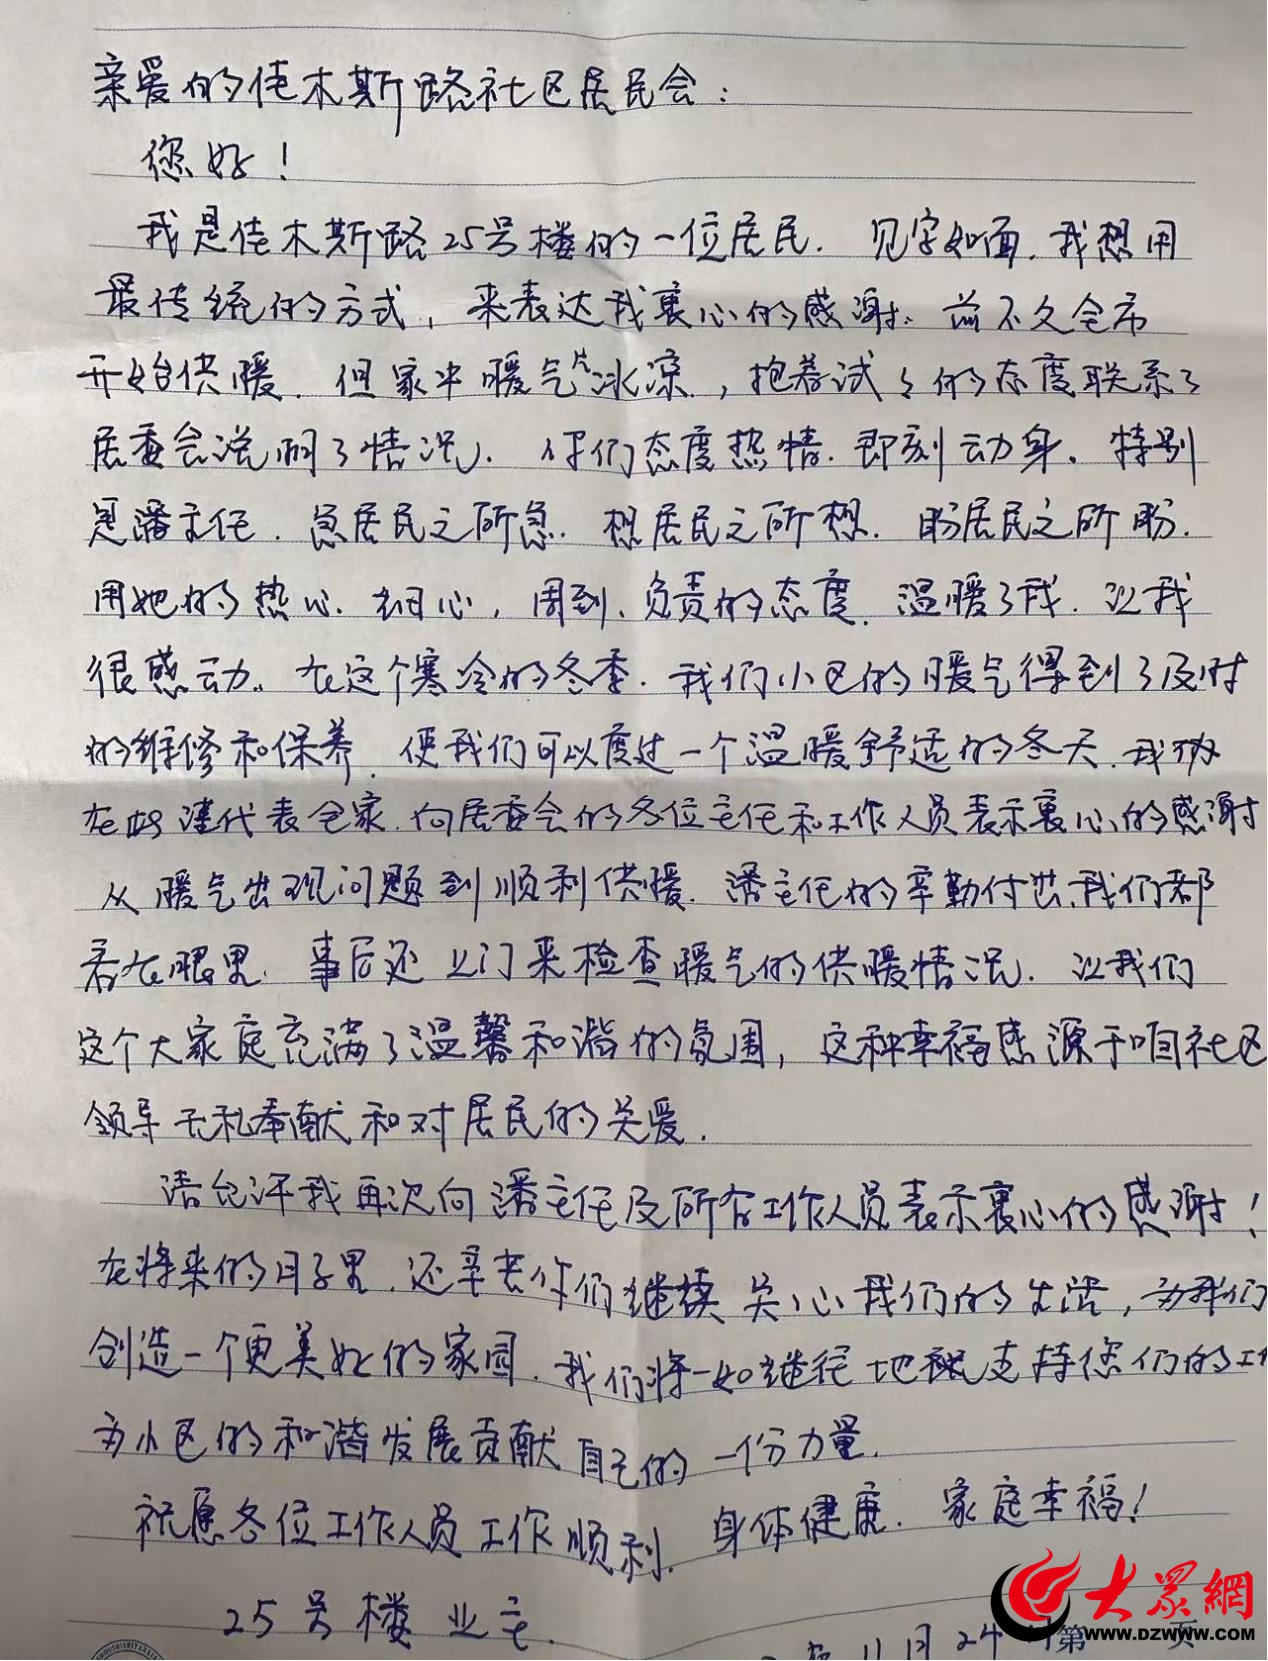 亲爱的佳木斯路社区居民会：
您好！
我是佳木斯路25号楼的一位居民．见字如面．我想用
最传统的方式，来表达我衷心的感谢．前不久全市
开始供暖．但家中暖气片冰凉．，抱着试了的态度联系了
居委会说明了情况．你们态度热情．即刻动身．特别
是潘主任．急居民之所急．想居民之所想．盼居民之所盼．
用她的热心．细心，周到、负责的态度．温暖了我．让我
很感动．在这个寒冷的冬季．我们小区的暖气得到了及时
的维修和保养．使我们可以度过一个温暖舒适的冬天．我
在此谨代表全家．向居委会的各位主任和工作人员表示衷心的感谢
从暖气出现问题到顺利供暖．潘主任的辛勤付出．我们都
看在眼里．事后还上门来检查暖气的供暖情况．让我们
这个大家庭充满了温馨和谐的氛围，这种幸福感源于咱社区
领导无私奉献和对居民的关爱．
请允许我再次向潘主任及所有工作人员表示衷心的感谢！
在将来的日子里．还辛苦你们继续关心我们的生活，为我们
创造一个更美好的家园．我们将一如继往地支持您们的工作
为小区的和谐发展贡献自己的一份力量．
祝愿各位工作人员工作顺利．身体健康．家庭幸福！
25号楼业主．
年11月24日
第 页
大眾網
WWW.DZWWW.COM